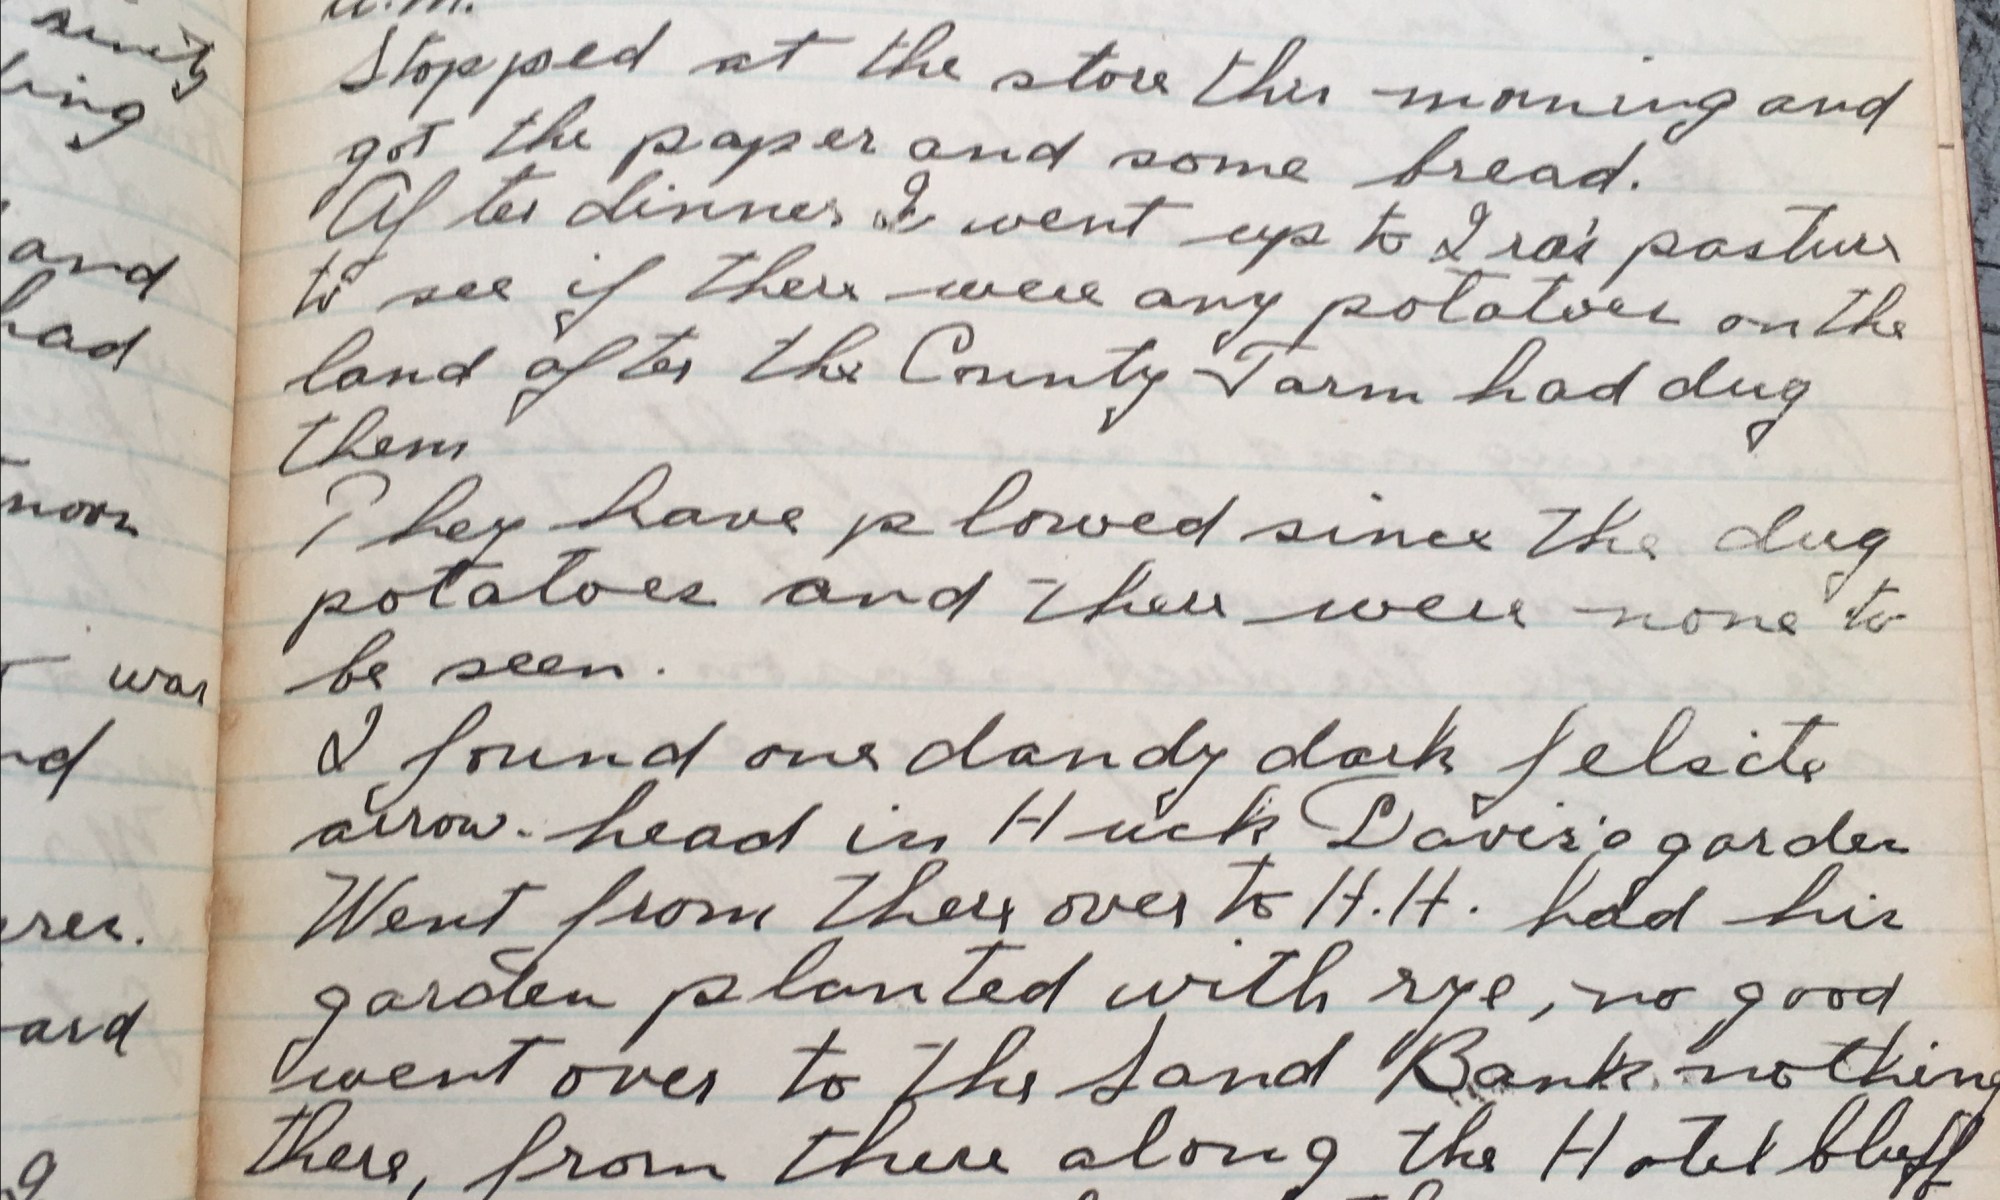 a.m.
Stopped at the store this morning and
got the paper and some bread.
After dinner I went up to Ira's pasture
to see if there were any potatoes on the
land after the County Farm had dug
them
They have plowed since the dug
potatoes and there were none to
be seen.
I found one dandy dark felsite
arrow-head in Huck Davis's garden
Went from there over to H.H. had his
garden planted with rye, no good
went over to the Sand Bank nothing
there, from there along the Hotel bluff
and
had
noon
was
ard